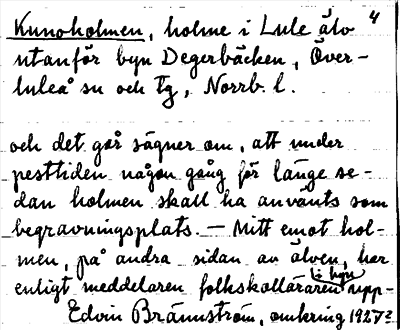 4
Kunoholmen, holme i Lule älv
utanför byn Degerbäcken, Över-
luleå sn och tg, Norrb. l.
och det går sägner om, att under
pesttiden någon gång för länge se-
dan holmen skall ha använts som
begravningsplats. — Mitt emot hol-
men, på andra sidan av älven, har
enligt meddelaren folkskolläraren upp-
Edvin Brännström, omkring 1927?